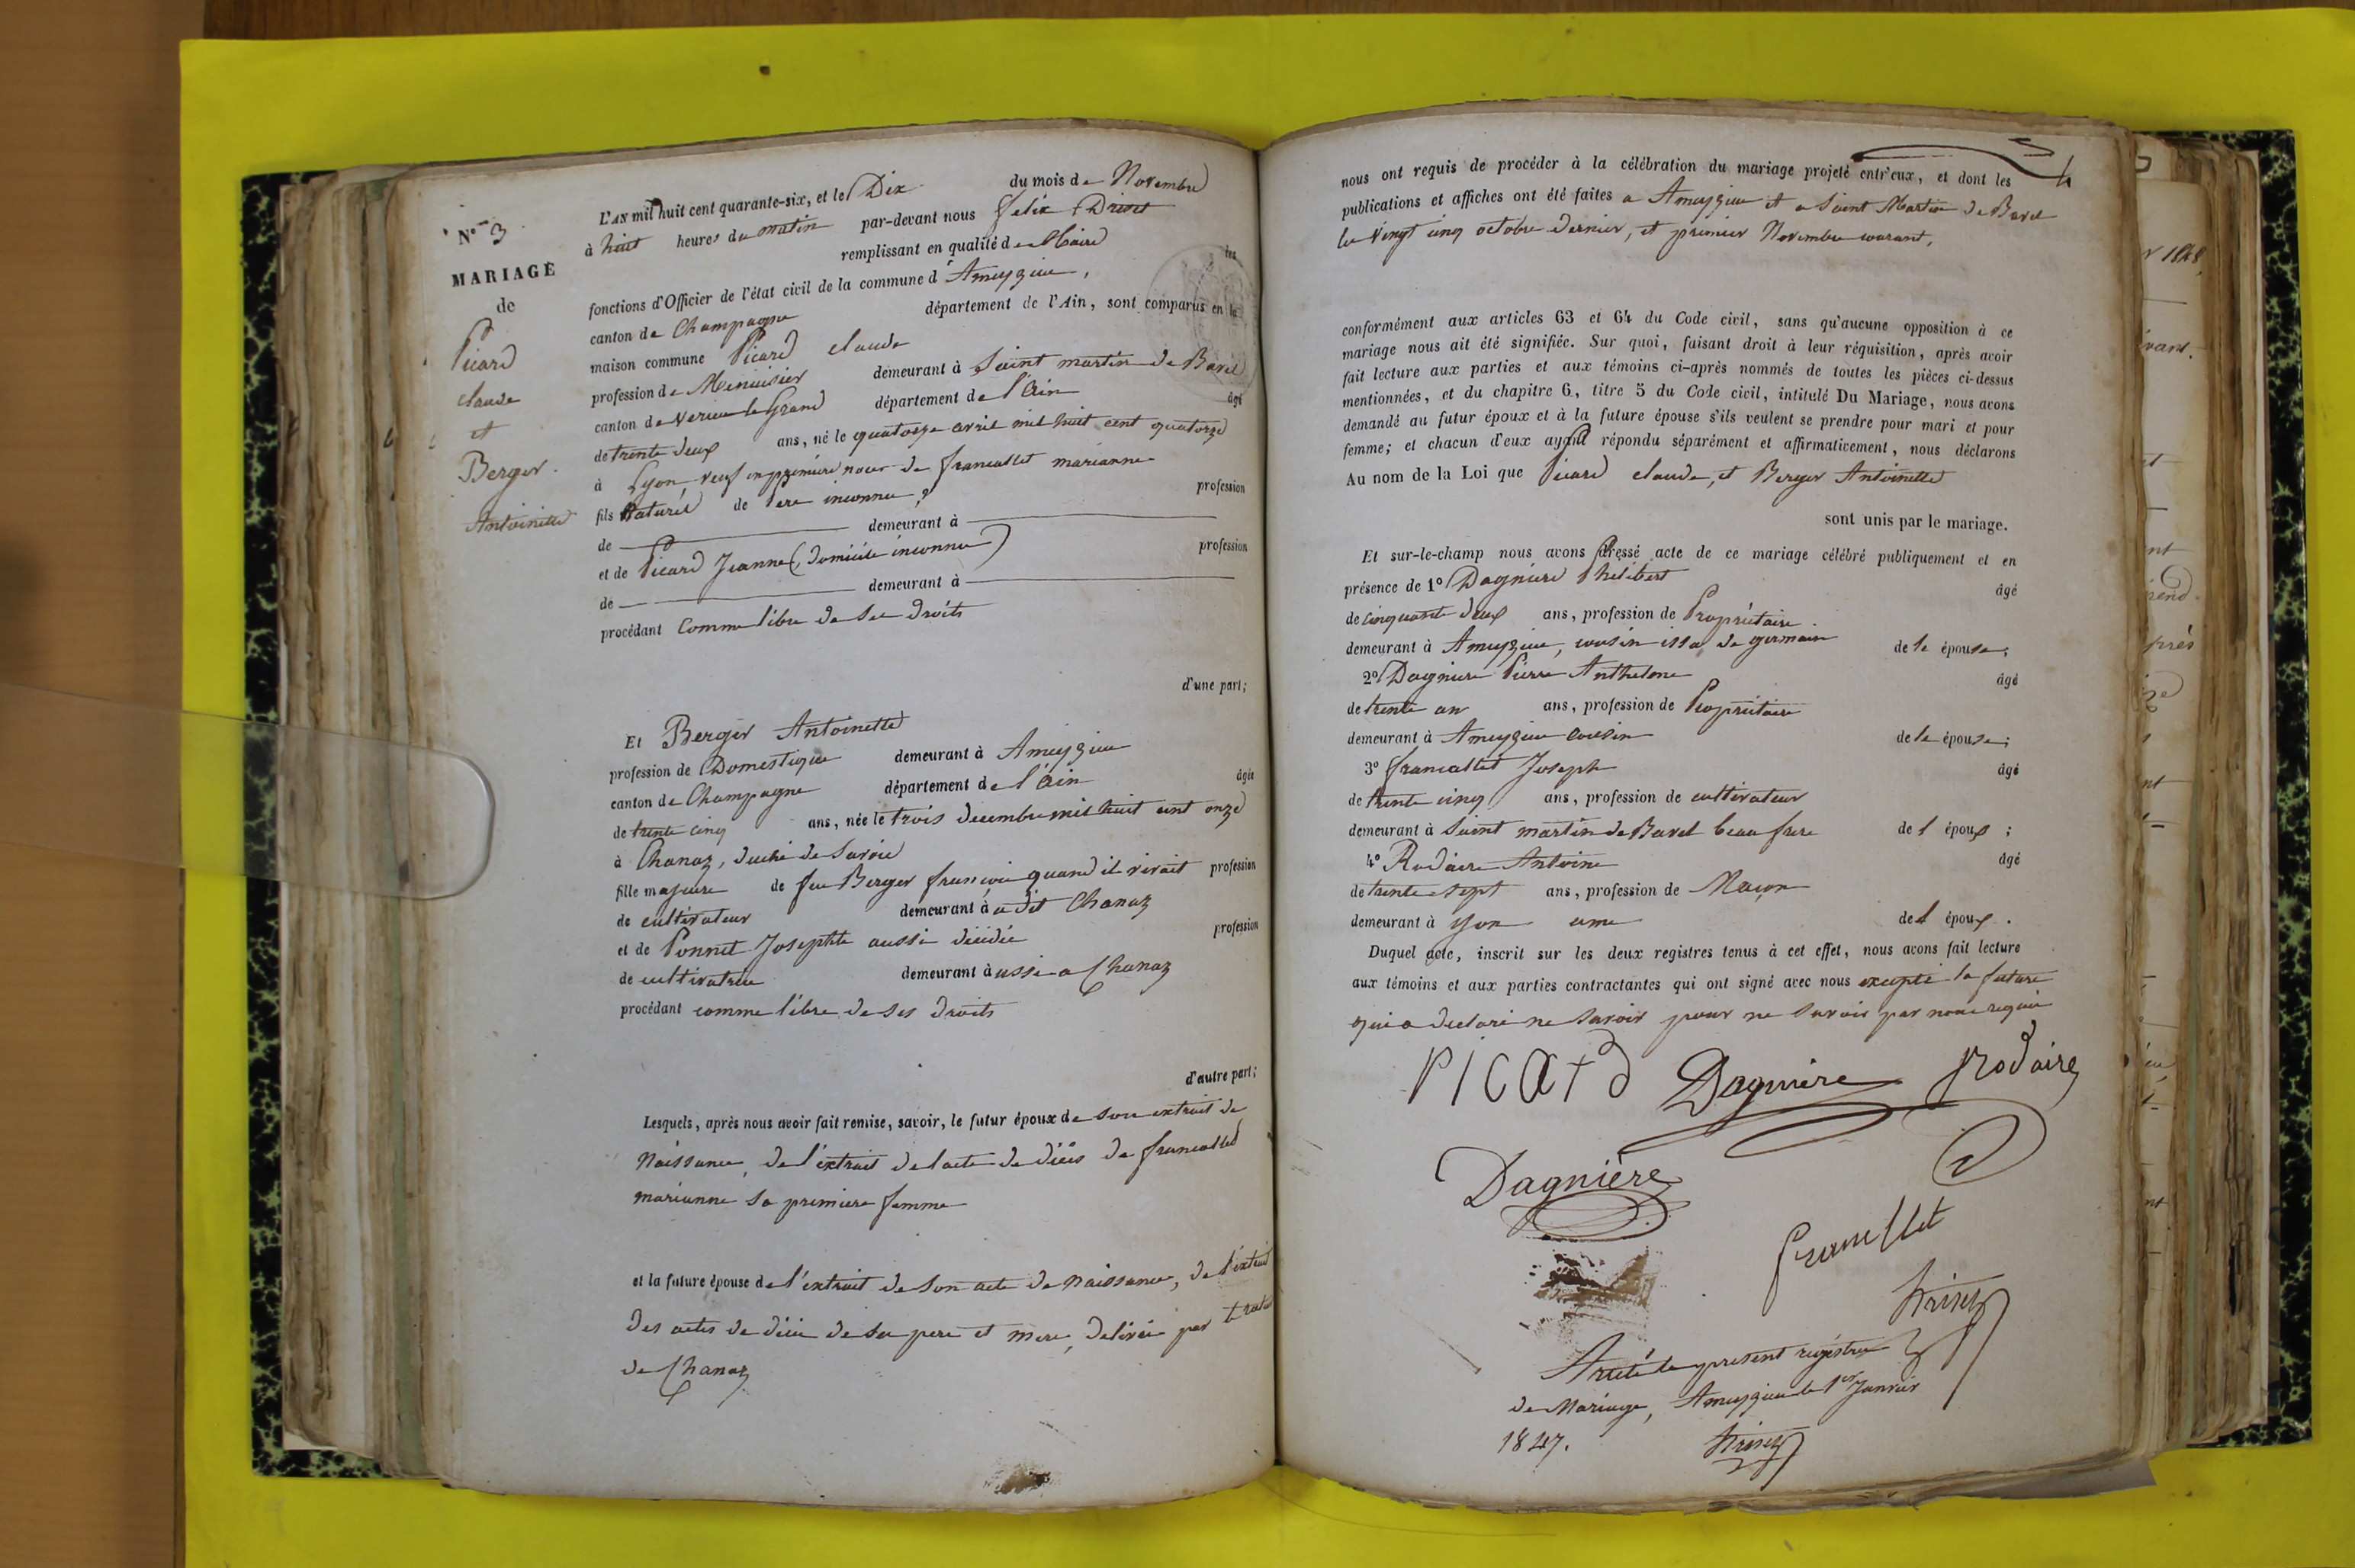 N° 3
MARIAGE
de
Picard
claude
et
Berger
Antoinette
L'AN mil huit cent quarante-six, et le Dix du mois de Novembre
à huit heures du matin par-devant nous felix
remplissant en qualité de Maire les
fonctions d'Officier de l'état civil de la commune d'Ameyzieu,
canton de Champagne département de l'Ain, sont comparus en la
maison commune Picard claude
profession de Menuisier demeurant à Saint martin de Bavel
canton de Verieu le Grand département de l'Ain âgé
de trente deux ans, né le quatorze avril mil huit cent quatorze
à Lyon veuf en première noces de francallet marianne
fils Naturel de Pere inconnu, profession
de demeurant à
et de Picard Jeanne (domicile inconnu) profession
de demeurant à
procédant comme libre de ses droits
d'une part;
Et Berger Antoinette
profession de Domestique demeurant à Ameyzieu
canton de Champagne département de l'Ain âgée
de trente cinq ans, née le trois decembre mil huit cent onze
à Chanaz, duché de Savoie
fille majeure de feu Berger francois quand il vivait profession
de cultivateur demeurant à udit Chanaz
et de Ponnet Josephte aussi décédée profession
de cultivatrice demeurant à ussi a Chanaz
procédant comme libre de ses droits
d'autre part;
Lesquels, après nous avoir fait remise, savoir, le futur époux de son extrait de
Naissance, de l'extrait de l'acte de décès de francallet
marianne sa premiere femme
et la future épouse de l'extrait de son acte de Naissance, de l'extrait
des actes de décès de ses pere et mere, délivrés par
de Chanaz
4
nous ont requis de procéder à la célébration du mariage projeté entr'eux, et dont les
publications et affiches ont été faites a Ameyzieu et a Saint Martin de Bavel
les vingt cinq octobre dernier, et premier Novembre courant,
conformément aux articles 63 et 64 du Code civil, sans qu'aucune opposition à ce
mariage nous ait été signifiée. Sur quoi, faisant droit à leur réquisition, après avoir
fait lecture aux parties et aux témoins ci-après nommés de toutes les pièces ci-dessus
mentionnées, et du chapitre 6, titre 5 du Code civil, intitulé Du Mariage, nous avons
demandé au futur époux et à la future épouse s'ils veulent se prendre pour mari et pour
femme; et chacun d'eux ayant répondu séparément et affirmativement, nous déclarons
Au nom de la Loi que Picard claude, et Berger Antoinette
sont unis par le mariage.
Et sur-le-champ nous avons dressé acte de ce mariage célébré publiquement et en
présence de 1° Dagniere Philibert âgé
de cinquante deux ans, profession de Propriétaire
demeurant à Ameyzieu, cousin issu de germain de le épouse;
2° Dagniere Pierre Anthelme âgé
de trente un ans, profession de Propriétaire
demeurant à Ameyzieu cousin de le épouse;
3° francallet Joseph âgé
de trente cinq ans, profession de cultivateur
demeurant à Saint martin de Bavel beau frere de l époux;
4° Rodaire Antoine âgé
de trente sept ans, profession de Maçon
demeurant à yon ami de l époux.
Duquel acte, inscrit sur les deux registres tenus à cet effet, nous avons fait lecture
aux témoins et aux parties contractantes qui ont signé avec nous excepté la future
qui a declaré ne Savoir pour ne Savoir par nous requise
PICArd Dagnière Rodaire
Dagnière
francallet
Arreté le present registre
de Mariage, Ameyzieu le 1er Janvier
1847.